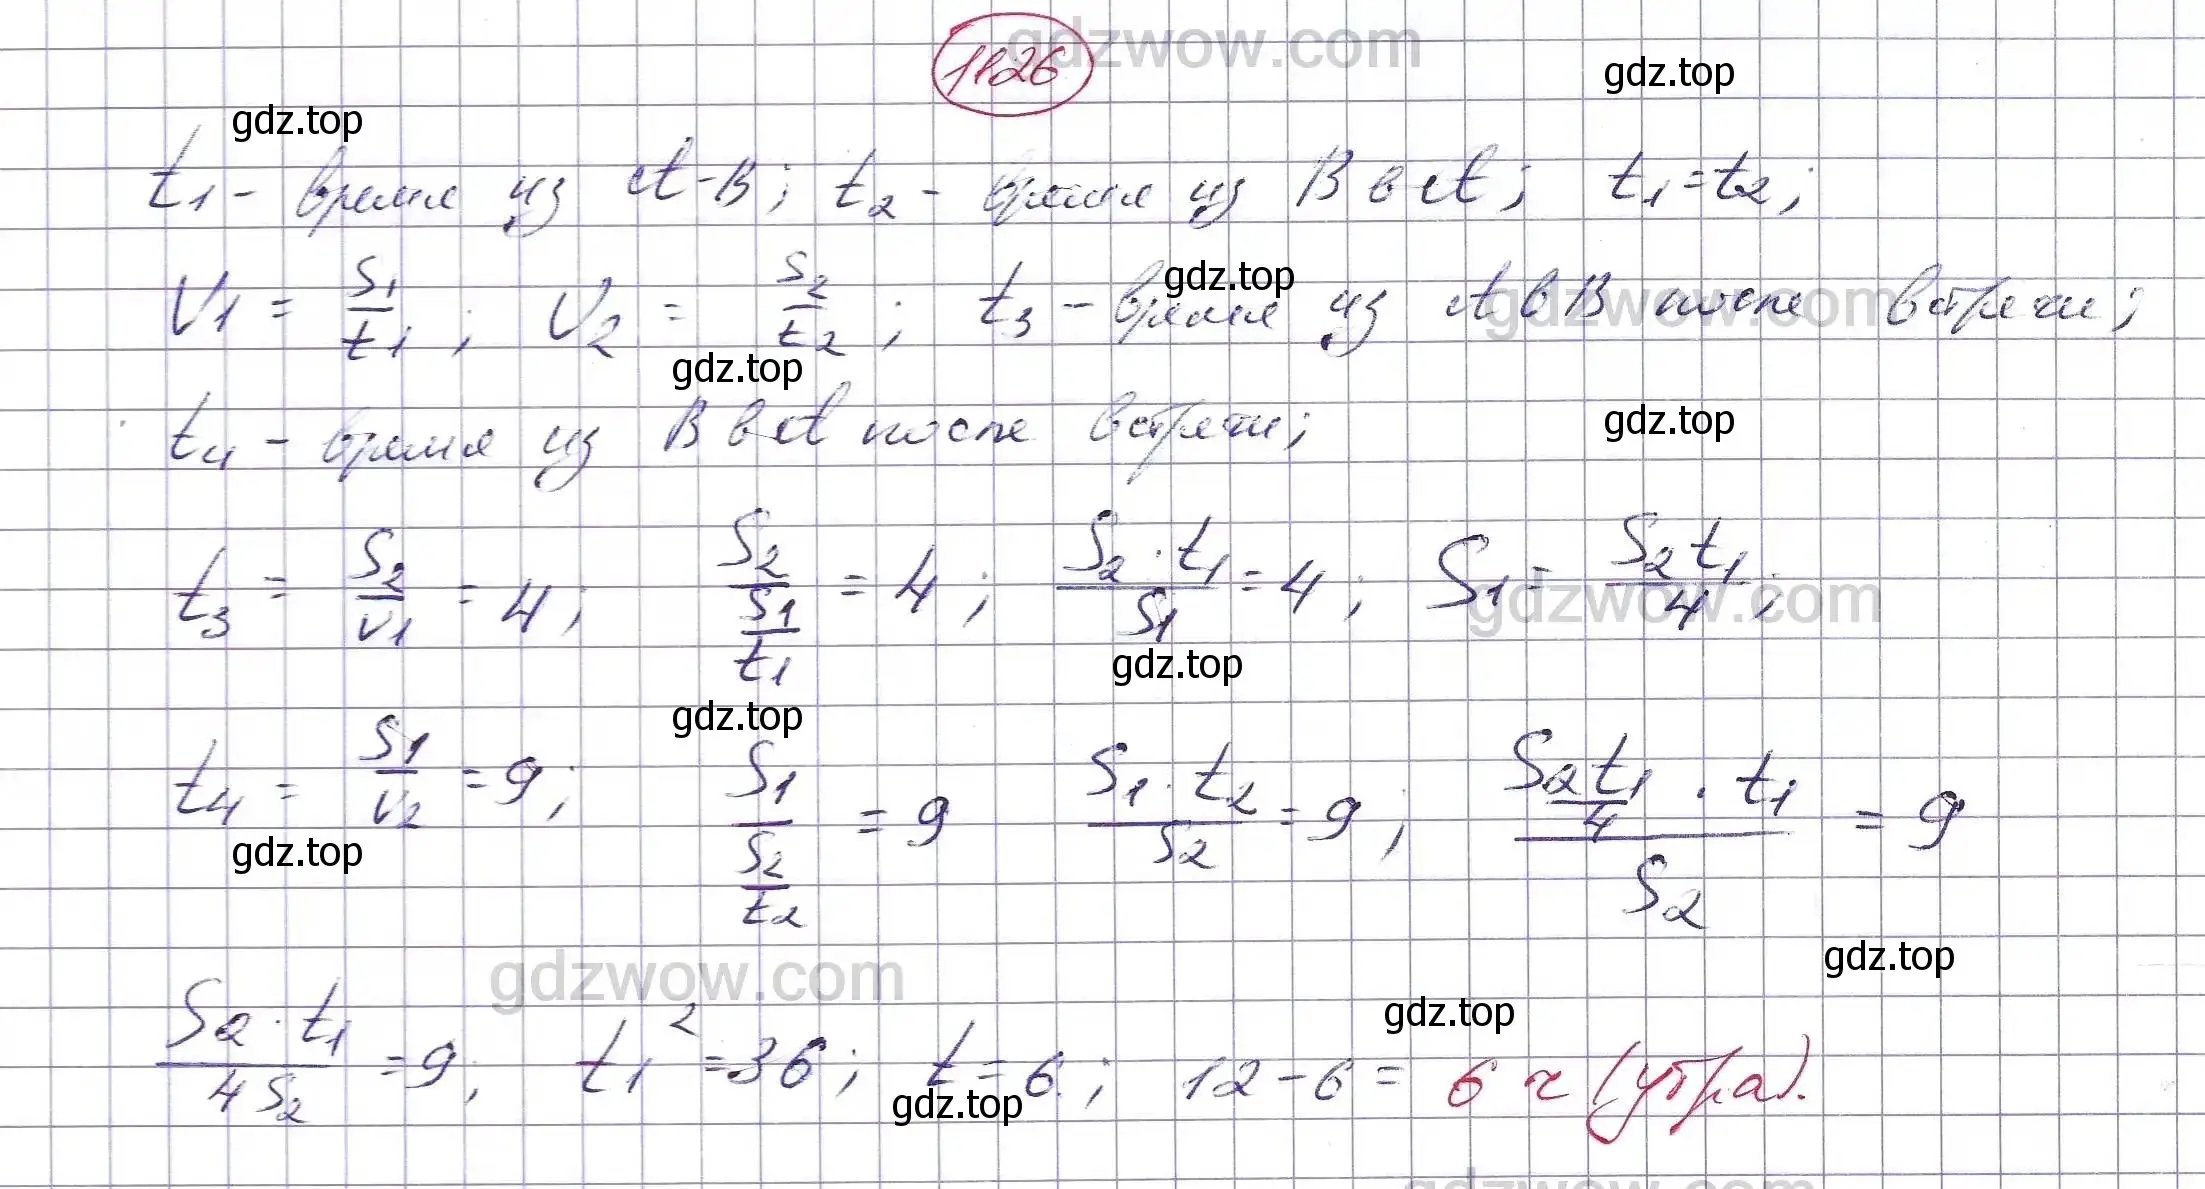 1126
gdzwow.com
gdz.top
gdz.top
t₁ - время из A-B; t₂ - время из B в A; t₁=t₂;
V₁ = S₁/t₁; V₂ = S₂/t₂; t₃ - время из A в B после встречи;
gdz.top
gdzwow.com
gdz.top
t₄ - время из B в A после встречи;
gdz.top
t₃ = S₂/V₁ = 4; S₂/(S₁/t₁) = 4; (S₂·t₁)/S₁ = 4; S₁ = (S₂t₁)/4;
gdzwow.com
gdz.top
gdz.top
t₄ = S₁/V₂ = 9; S₁/(S₂/t₂) = 9 (S₁·t₂)/S₂ = 9; ((S₂t₁)/4 · t₁)/S₂ = 9
gdz.top
gdz.top
gdzwow.com
gdz.top
(S₂·t₁)/(4S₂) = 9; t₁² = 36; t = 6; 12 - 6 = 6 ч (утра).
gdz.top
gdzwow.com